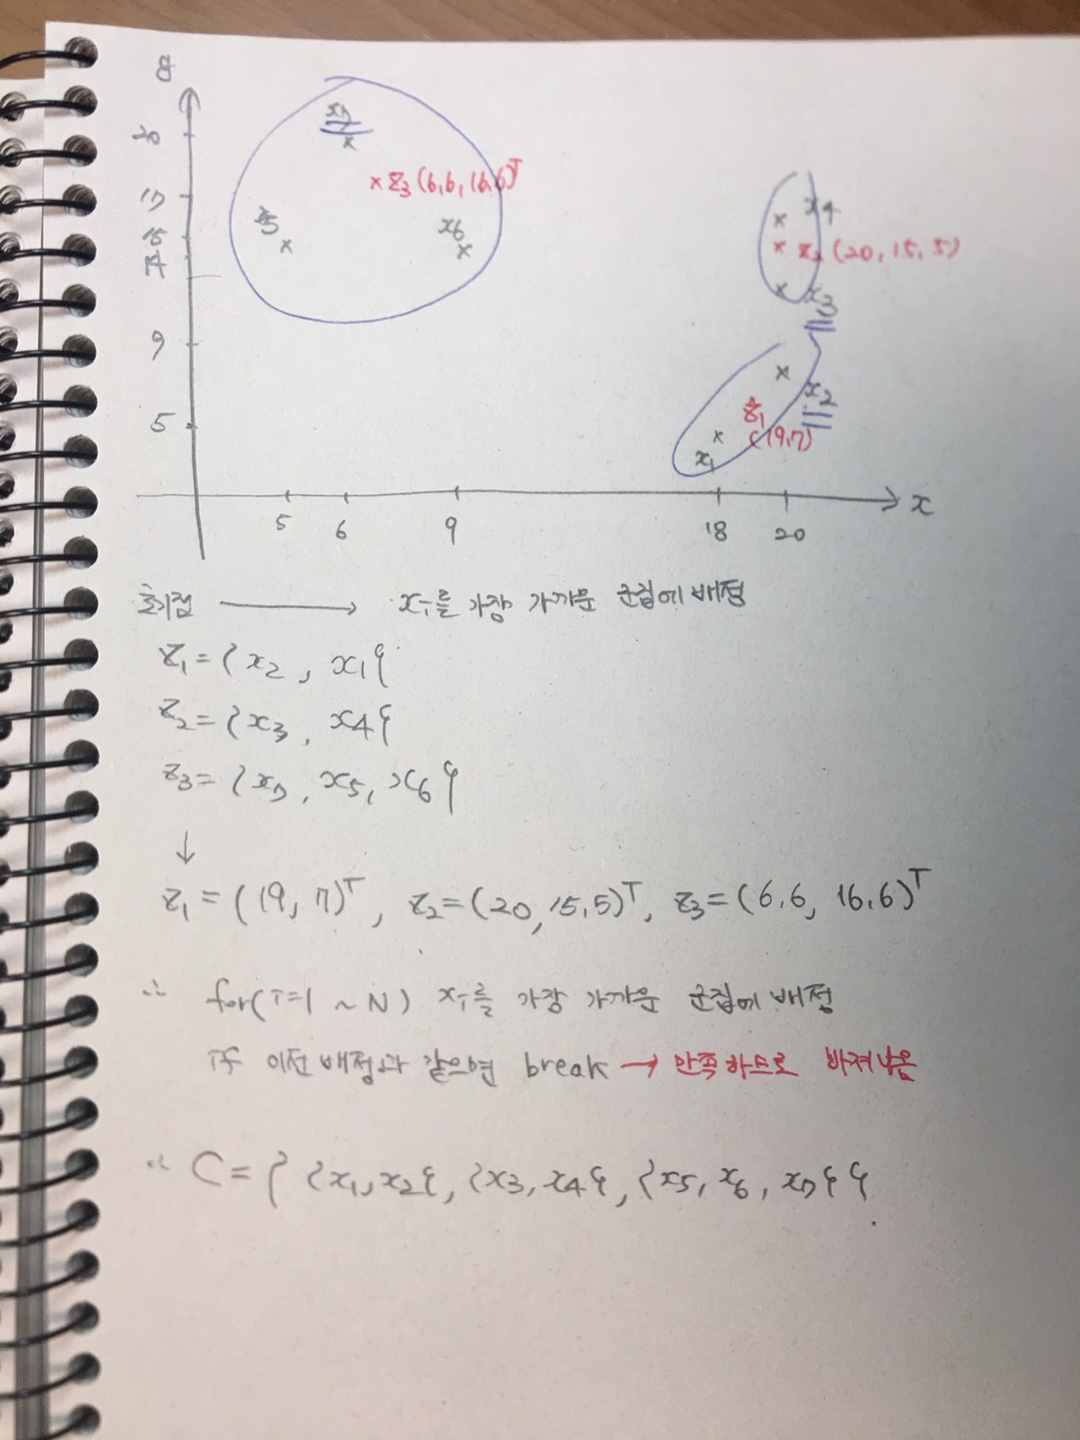 y
20
x7
z3 (6.6, 16.6)ᵀ
17
x5
x6
x4
15
z2 (20, 15.5)
14
x3
9
x2
5
z1
(19,7)
x1
5 6 9 18 20 x
초기점 → xi를 가장 가까운 군집에 배정
z1 = { x2 , x1 }
z2 = { x3 , x4 }
z3 = { x7 , x5, x6 }
↓
z1 = (19, 7)ᵀ, z2 = (20, 15.5)ᵀ, z3 = (6.6, 16.6)ᵀ
∴ for(i=1 ~ N) xi를 가장 가까운 군집에 배정
if 이전 배정과 같으면 break → 만족하므로 빠져나옴
∴ C = { {x1, x2}, {x3, x4}, {x5, x6, x7} }